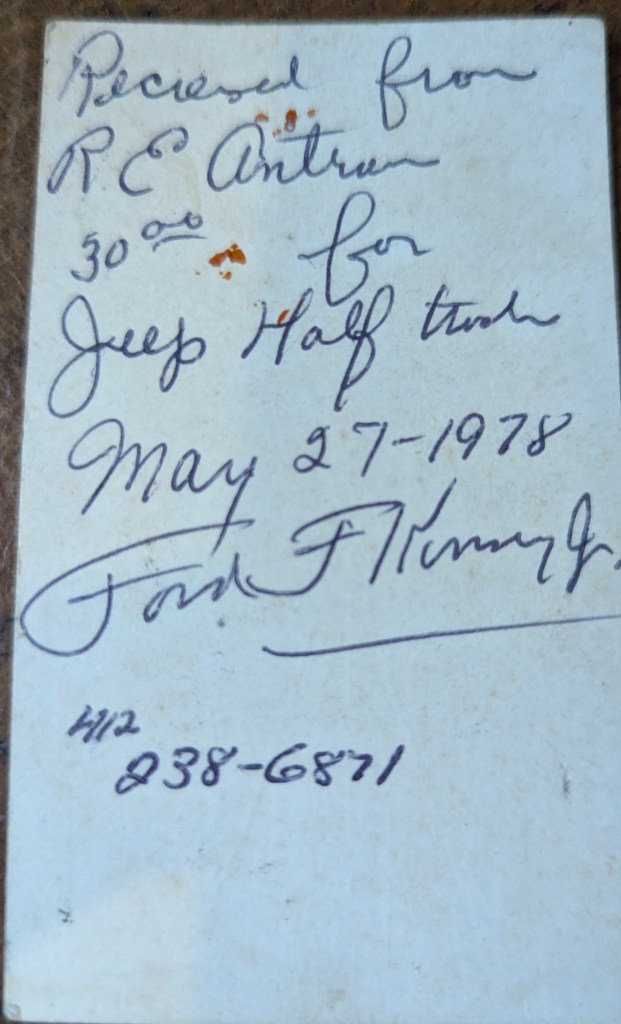 Received from
R E Antram
30 00 for
Jeep Half track
May 27-1978
Ford F Kinney Jr.
412
238-6871